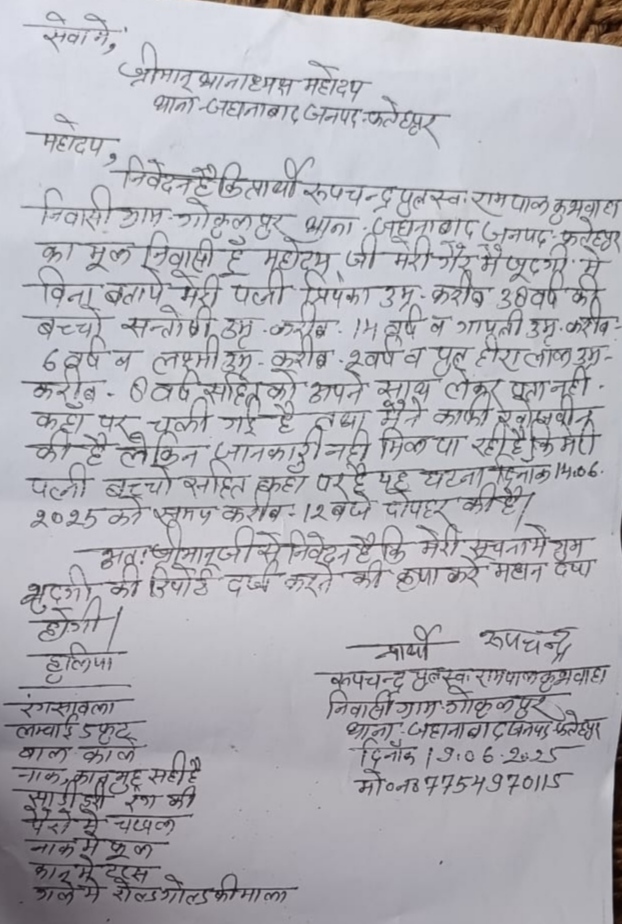 सेवा मे,
श्रीमान् थानाध्यक्ष महोदय
थाना-जहानाबाद जनपद-फतेहपुर
महोदय,
निवेदन है कि प्रार्थी रूपचन्द्र पुत्र स्व: रामपाल कुशवाहा
निवासी ग्राम-गोकुलपुर थाना-जहानाबाद जनपद-फतेहपुर
का मूल निवासी है महोदय जी मेरी गैर मौजूदगी मे
बिना बताये मेरी पत्नी प्रियंका उम्र-करीब 38 वर्ष की
बच्चो सन्तोषी उम्र-करीब-14 वर्ष व गायत्री उम्र-करीब-
6 वर्ष व लक्ष्मी उम्र-करीब-2 वर्ष व पुत्र हीरालाल उम्र-
करीब-8 वर्ष सहित को अपने साथ लेकर पता नही
कहा पर चली गई है तथा मैने काफी खोजबीन
की है लेकिन जानकारी नही मिल पा रही है कि मेरी
पत्नी बच्चो सहित कहा पर है यह घटना दिनाक 14.06.
2025 को समय करीब-12 बजे दोपहर की है/
अतः श्रीमान् जी से निवेदन है कि मेरी सूचना मे गुम
शुदगी की रिपोर्ट दर्ज करने की कृपा करे महान दया
होगी/
हुलिया
प्रार्थी रूपचन्द्र
रूपचन्द्र पुत्र स्व: रामपाल कुशवाहा
निवासी ग्राम-गोकुलपुर
थाना-जहानाबाद जनपद-फतेहपुर
दिनाँक 19.06.2025
मो०न० 7754970115
रंग सावला
लम्बाई 5 फुट
बाल काले
नाक, कान मुह सही है
साड़ी हरी रंग की
पैरो मे चप्पल
नाक मे फूल
कान मे टप्स
गले मे रोल्ड गोल्ड की माला